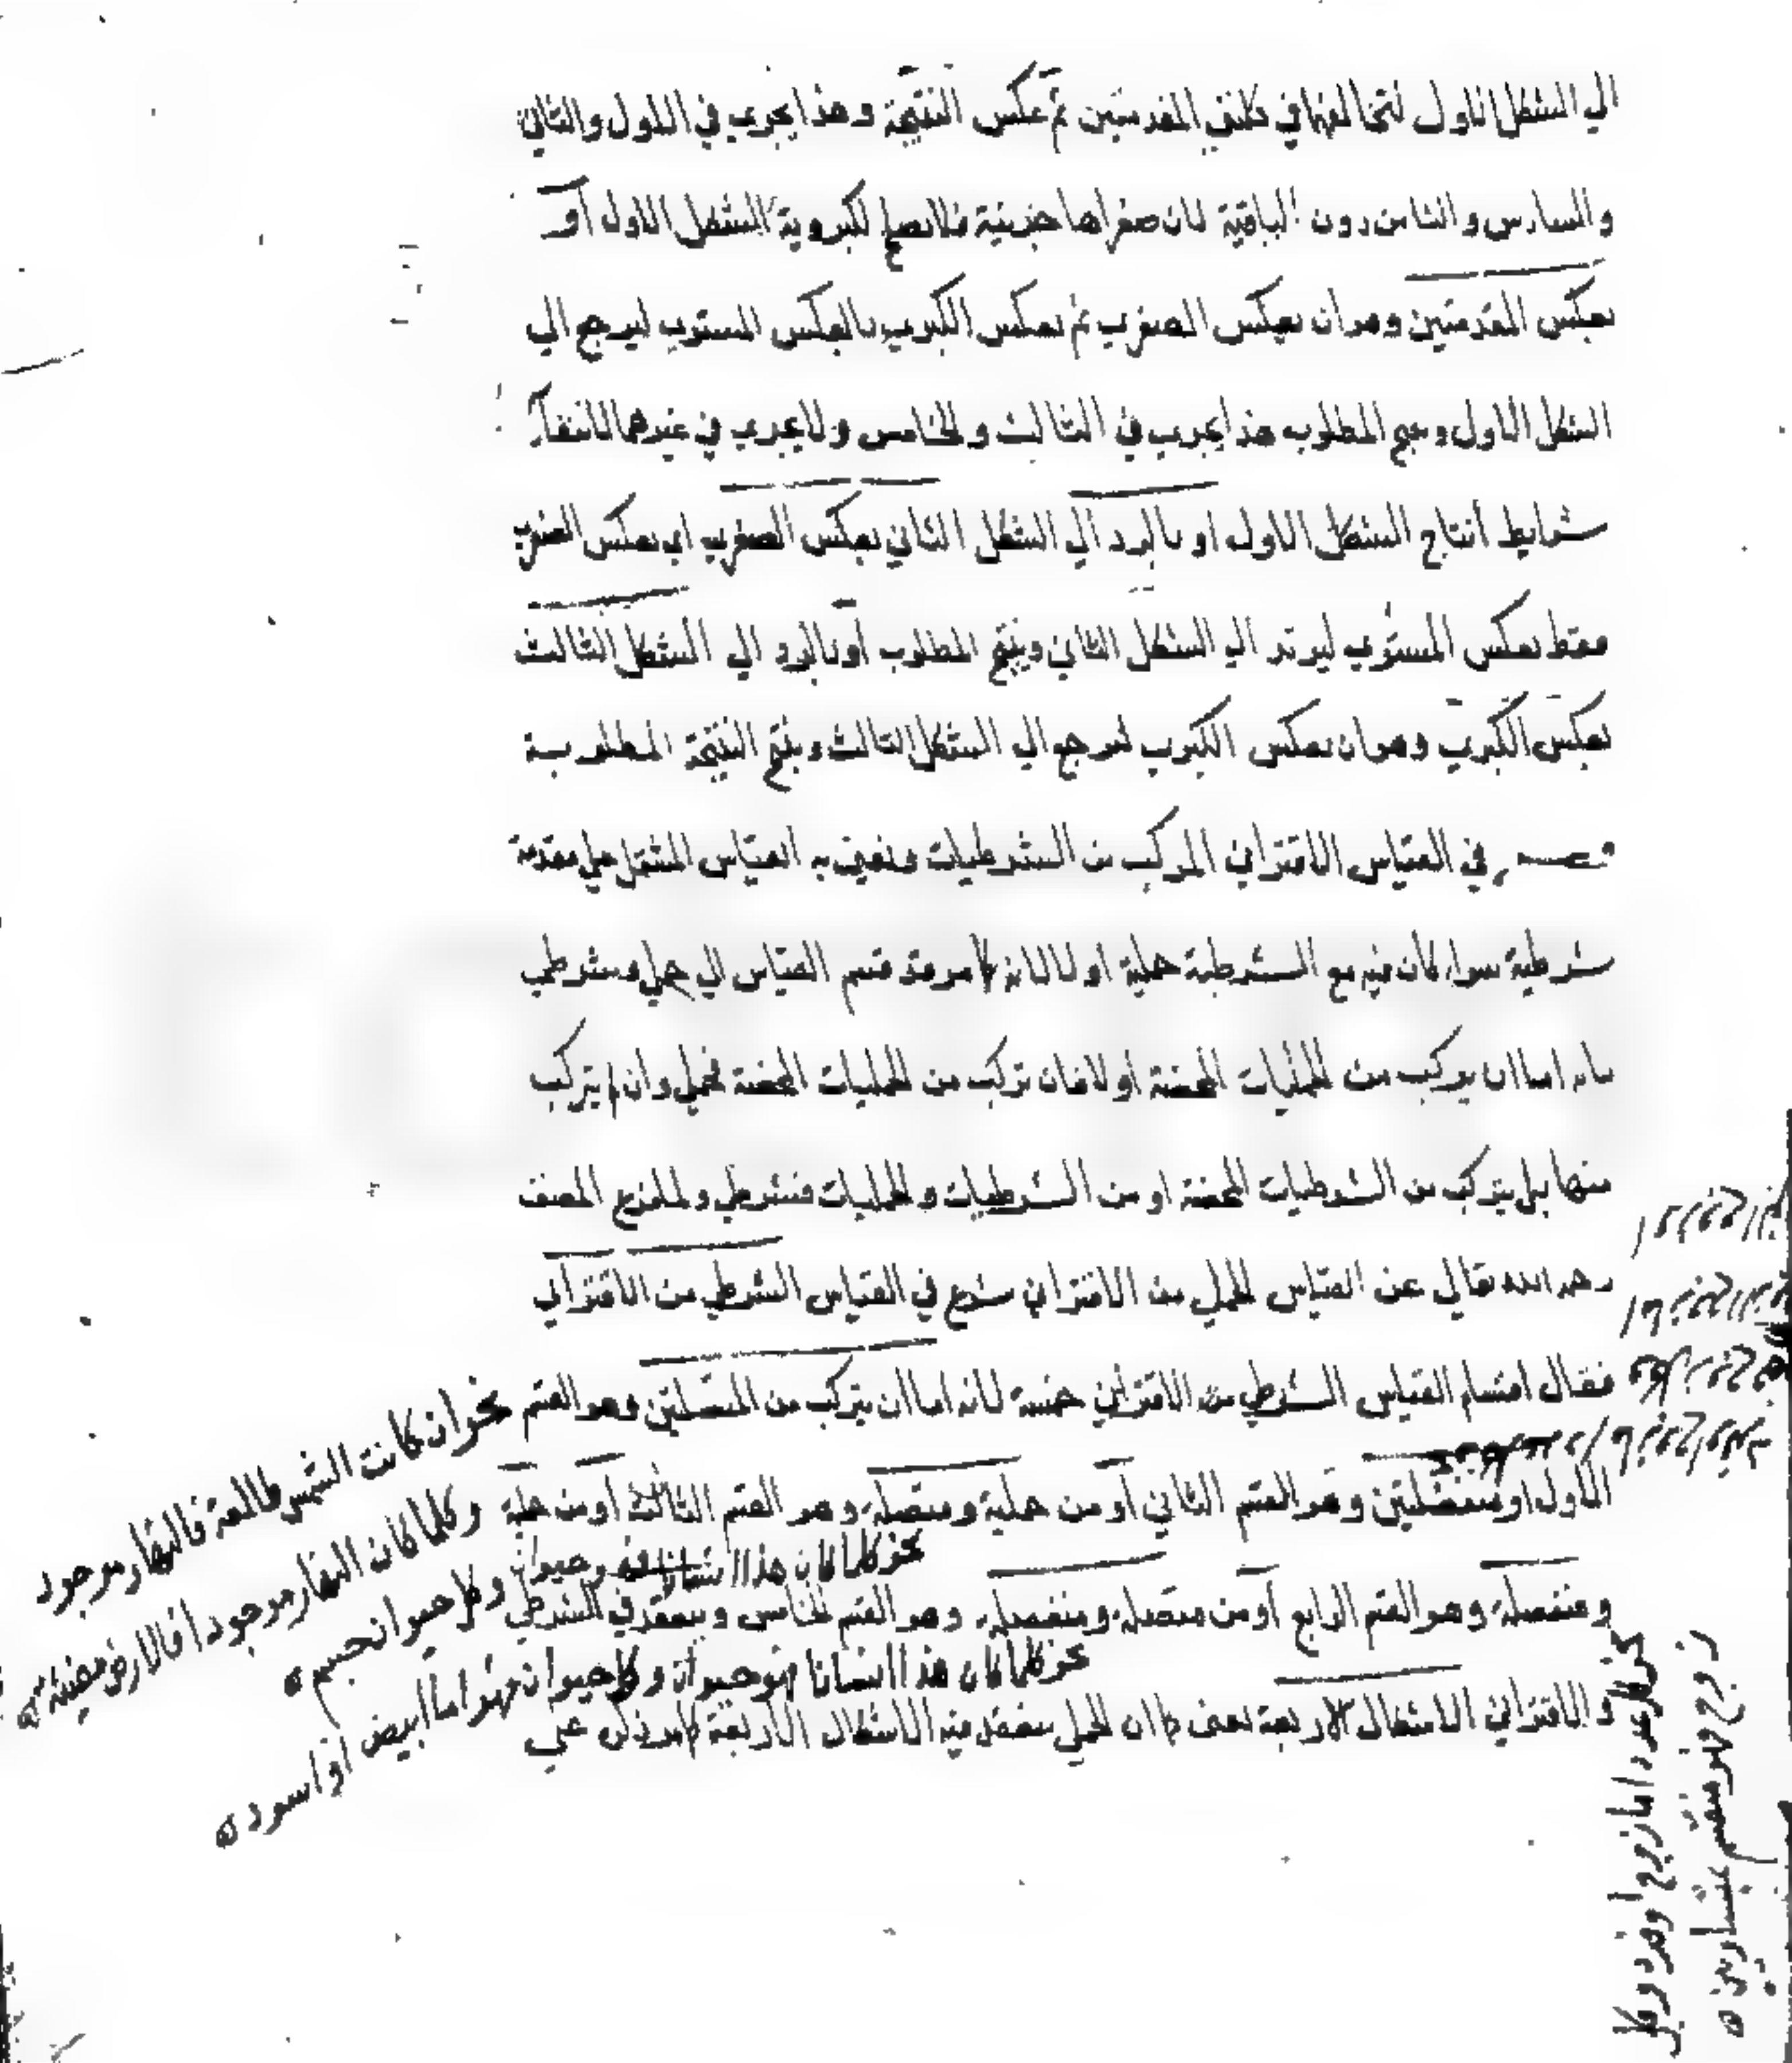 الي الشكل الاول لتخالفهما في كلتي المقدمتين ثم عكس النتيجة وهذا يجري في الاول والثاني
والسادس والثامن دون الباقية لان صغراها جزئية فلا تصلح لكبروية الشكل الاول أو
بعكس المقدمتين وهو ان يعكس الصغري ثم يعكس الكبري بالعكس المستوي ليرجع الي
الشكل الاول وينتج المطلوب هذا يجري في الثالث والخامس ولا يجري في غيرهما لانتفاء
شرايط أنتاج الشكل الاول او بالرد الي الشكل الثاني بعكس الصغري اي بعكس الصغري
فقط بعكس المستوي ليرتد الي الشكل الثاني وينتج المطلوب أو بالرد الي الشكل الثالث
بعكس الكبري وهو ان يعكس الكبري ليرجع الي الشكل الثالث وينتج النتيجة المطلوبة
فصـــل في القياس الاقتراني المركب من الشرطيات ونعني به القياس المشتمل علي مقدمة
شرطية سواء كان فيه مع الشرطية حملية او لا لانه كما مر قد قسم القياس الي حملي وشرطي
بانه اما ان يتركب من الحمليات المحضة أو لا فان تركب من الحمليات المحضة فحملي وان لم يتركب
منها بل يتركب من الشرطيات المحضة او من الشرطيات والحمليات فشرطي ولما فرغ المصنف
رحمه الله تعالي عن القياس الحملي من الاقتراني شرع في القياس الشرطي من الاقتراني
فقال اقسام القياس الشرطي من الاقتراني خمسة لانه اما ان يتركب من المتصلتين وهو القسم
الاول او منفصلتين وهو القسم الثاني أو من حملية ومتصلة وهو القسم الثالث أو من حملية
ومنفصلة وهو القسم الرابع أو من متصلة ومنفصلة وهو القسم الخامس وينعقد في الشرطي
والاقتراني الاشكال الاربعة يعني كما ان الحملي ينعقد فيه الاشكال الاربعة كما مر ذلك علي
نحو ان كانت الشمس طالعة فالنهار موجود
وكلما كان النهار موجودا فالارض مضيئة
نحو كلما كان هذا انسانا فهو حيوان وكل حيوان جسم
نحو كلما كان هذا انسانا فهو حيوان وكل حيوان فهو اما أبيض أو اسود
نحو كل عدد اما زوج أو فرد وكل
زوج فهو منقسم بمتساويين